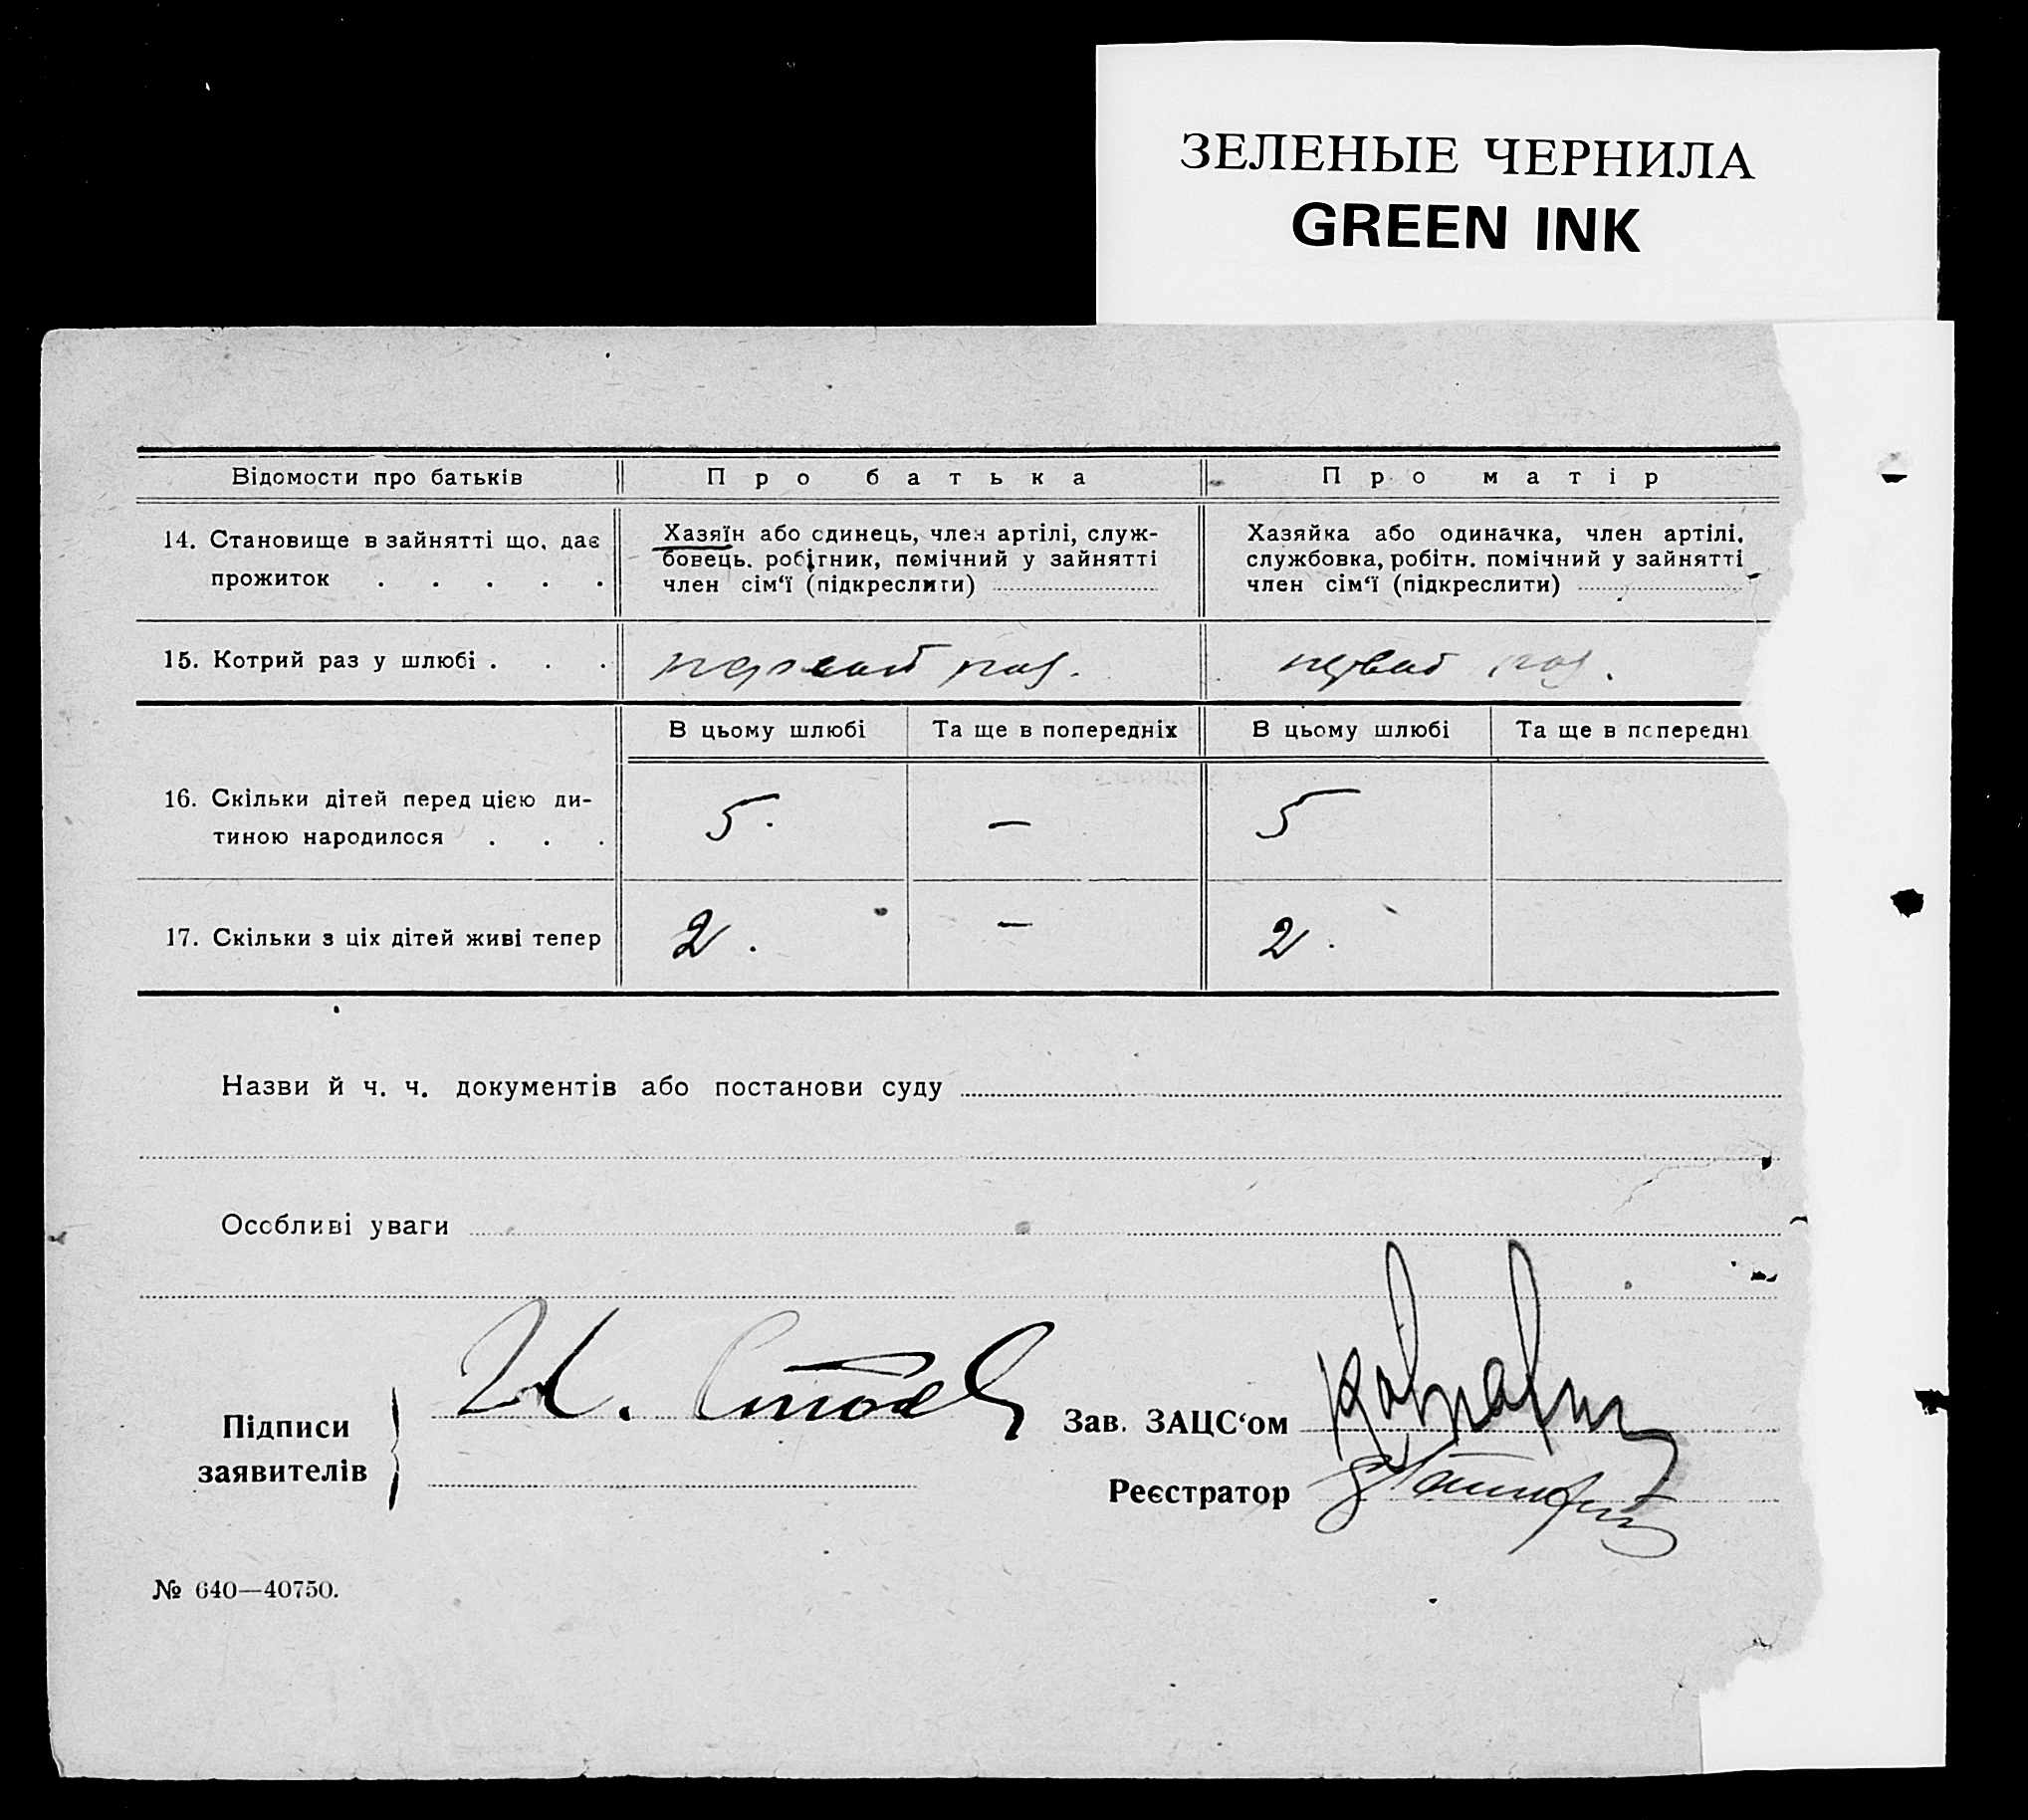 ЗЕЛЕНЫЕ ЧЕРНИЛА
GREEN INK
Відомости про батьків Про батька Про матір
14. Становище в зайнятті що, дає прожиток . . . . .
Хазяїн або єдинець, член артілі, служ-
бовець. робітник, помічний у зайнятті
член сім‘ї (підкреслити)
Хазяйка або одиначка, член артілі,
службовка, робітн. помічний у зайнятті
член сім‘ї (підкреслити)
15. Котрий раз у шлюбі . . . первый раз. первый раз.
В цьому шлюбі Та ще в попередніх В цьому шлюбі Та ще в попередні
16. Скільки дітей перед цією ди-
тиною народилося . . . 5. — 5
17. Скільки з ціх дітей живі тепер 2. — 2.
Назви й ч. ч. документів або постанови суду
Особливі уваги
Підписи
заявителів
И.
Зав. ЗАЦС‘ом
Реєстратор
№ 640—40750.